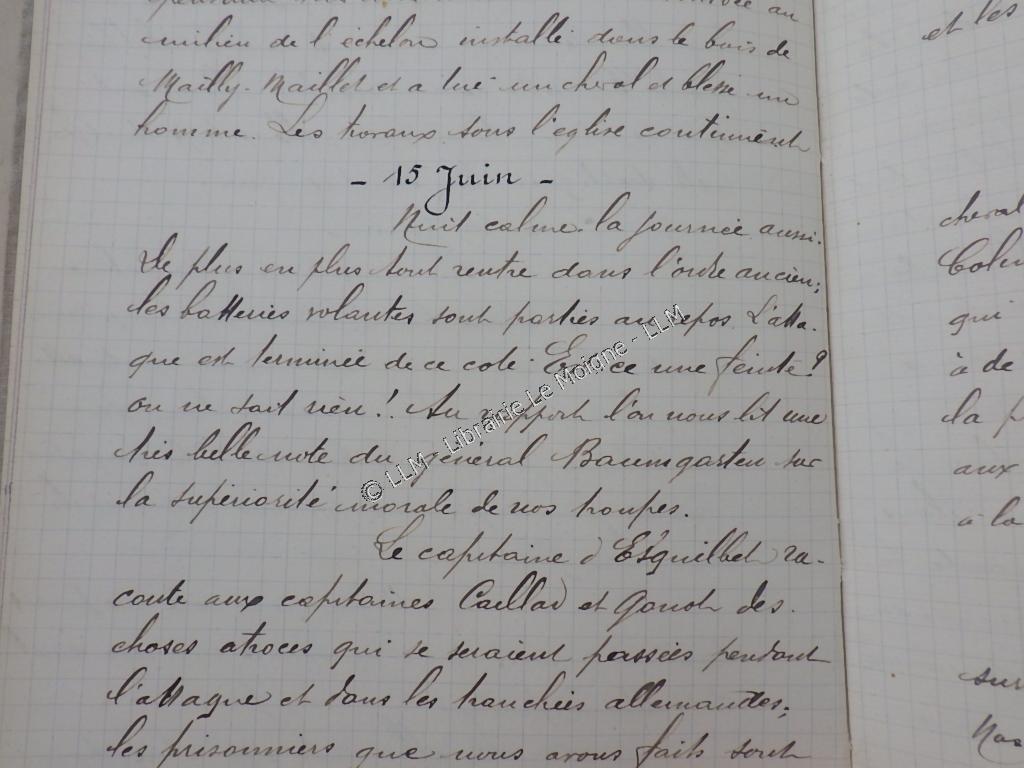 milieu de l'échelon installé dans le bois de
Mailly-Maillet et a tué un cheval et blessé un
homme. Les travaux sous l'église continuent
- 15 Juin -
Nuit calme. la journée aussi.
De plus en plus tout rentre dans l'ordre ancien;
les batteries volantes sont parties au repos. L'atta-
que est terminée de ce coté. Est-ce une feinte?
on ne sait rien! Au rapport l'on nous lit une
très belle note du général Baumgarten sur
la supériorité morale de nos troupes.
Le capitaine d'Esquilbet ra-
conte aux capitaines Caillad et Gonot des
choses atroces qui se seraient passées pendant
l'attaque et dans les tranchées allemandes;
les prisonniers que nous avons faits sont
© LLM - Librairie Le Moigne - LLM
et les
cheval
qui
à de
la
aux
à la
sur